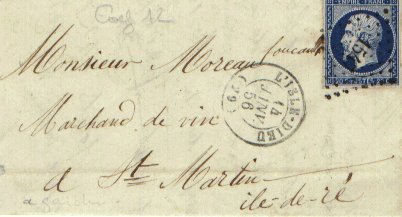 Coef 12
EMPIRE-FRANC.
Monsieur Moreau
L'ISLE-DIEU
14
JANV.
56
(79)
Marchand de vin
a St Martin
ile-de-ré